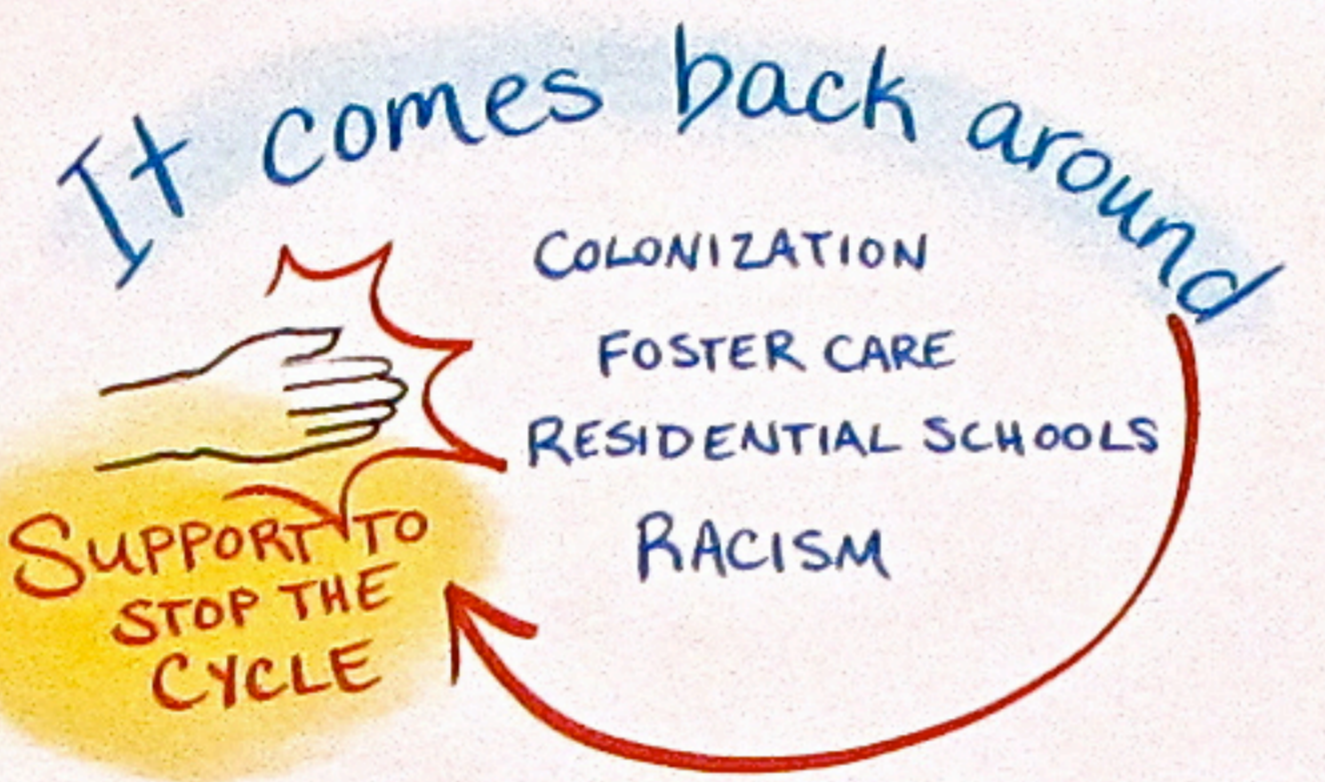 It comes back around
COLONIZATION
FOSTER CARE
RESIDENTIAL SCHOOLS
RACISM
SUPPORT TO
STOP THE
CYCLE